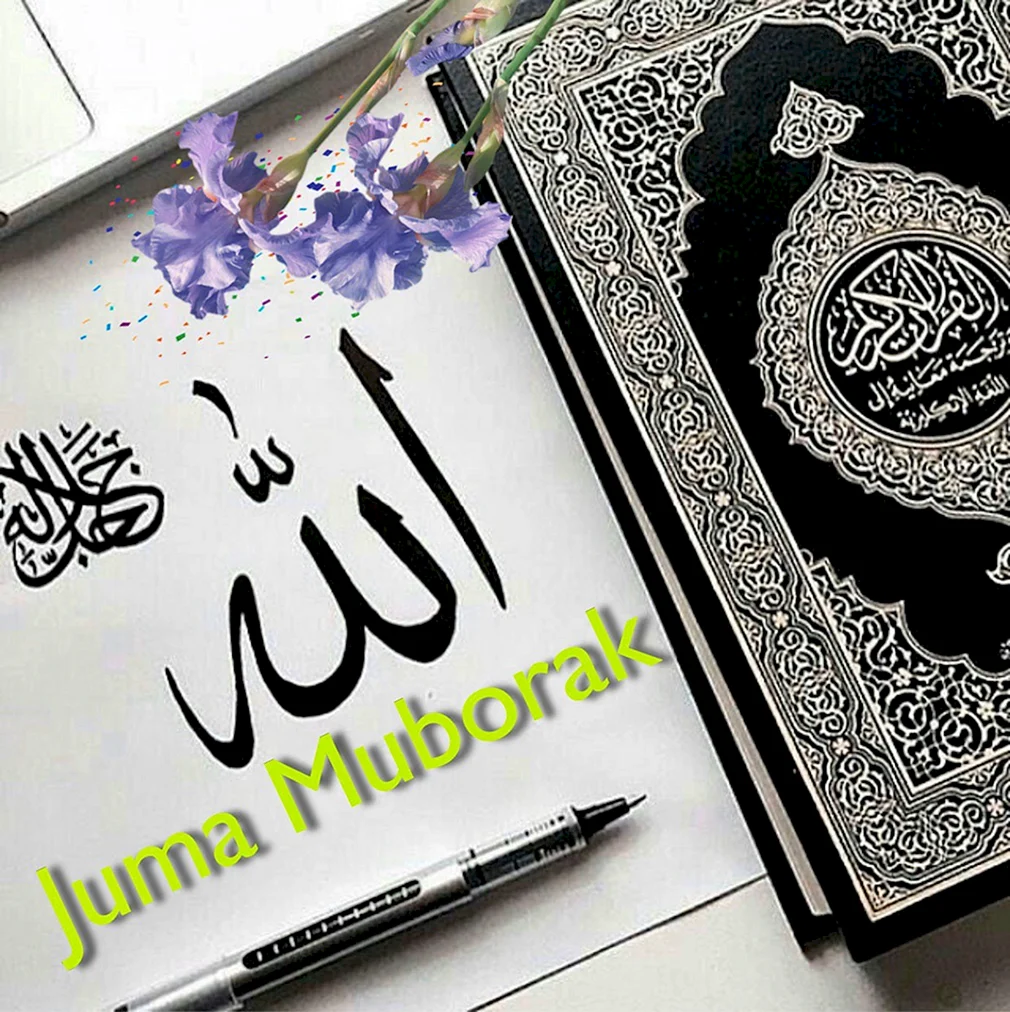 القرآن الكريم
وترجمة معانيه إلى
اللغة الإنكليزية
الله
Juma Muborak